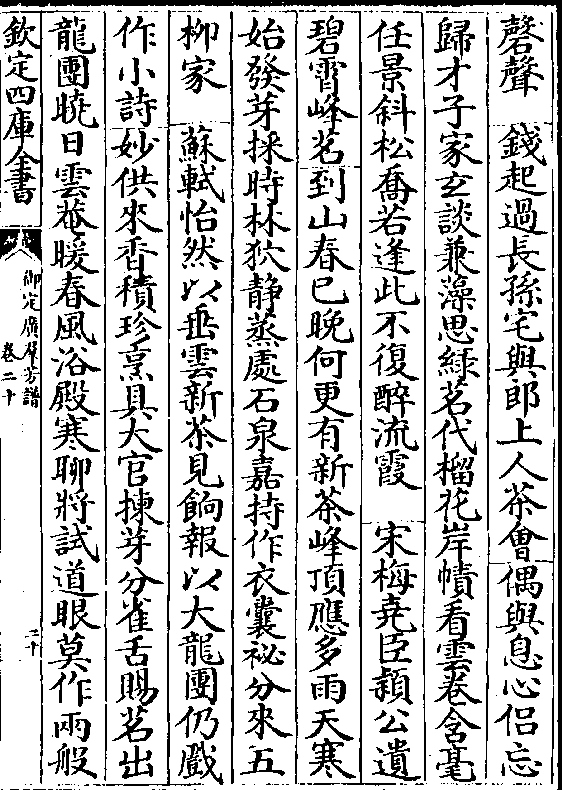 磬聲　錢起過長孫宅與郎上人茶會偶與息心侣忘
歸才子家玄談兼藻思綠茗代榴花岸幘看雲卷含毫
任景斜松喬若逢此不復醉流霞　宋梅堯臣潁公遺
碧霄峰茗到山春已晚何更有新茶峰頂應多雨天寒
始發芽採時林狖靜蒸處石泉嘉持作衣囊祕分來五
柳家　蘇軾怡然以垂雲新茶見餉報以大龍團仍戲
作小詩妙供來香積珍烹具大官揀芽分雀舌賜茗出
龍團曉日雲菴暖春風浴殿寒聊將試道眼莫作兩般
欽定四庫全書
御定廣羣芳譜
卷二十
二十